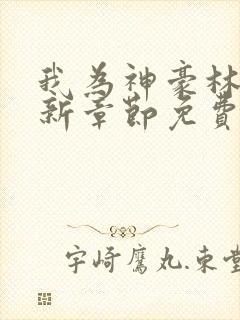 我為神豪林
新章節免費
宇崎鷹丸.東堂